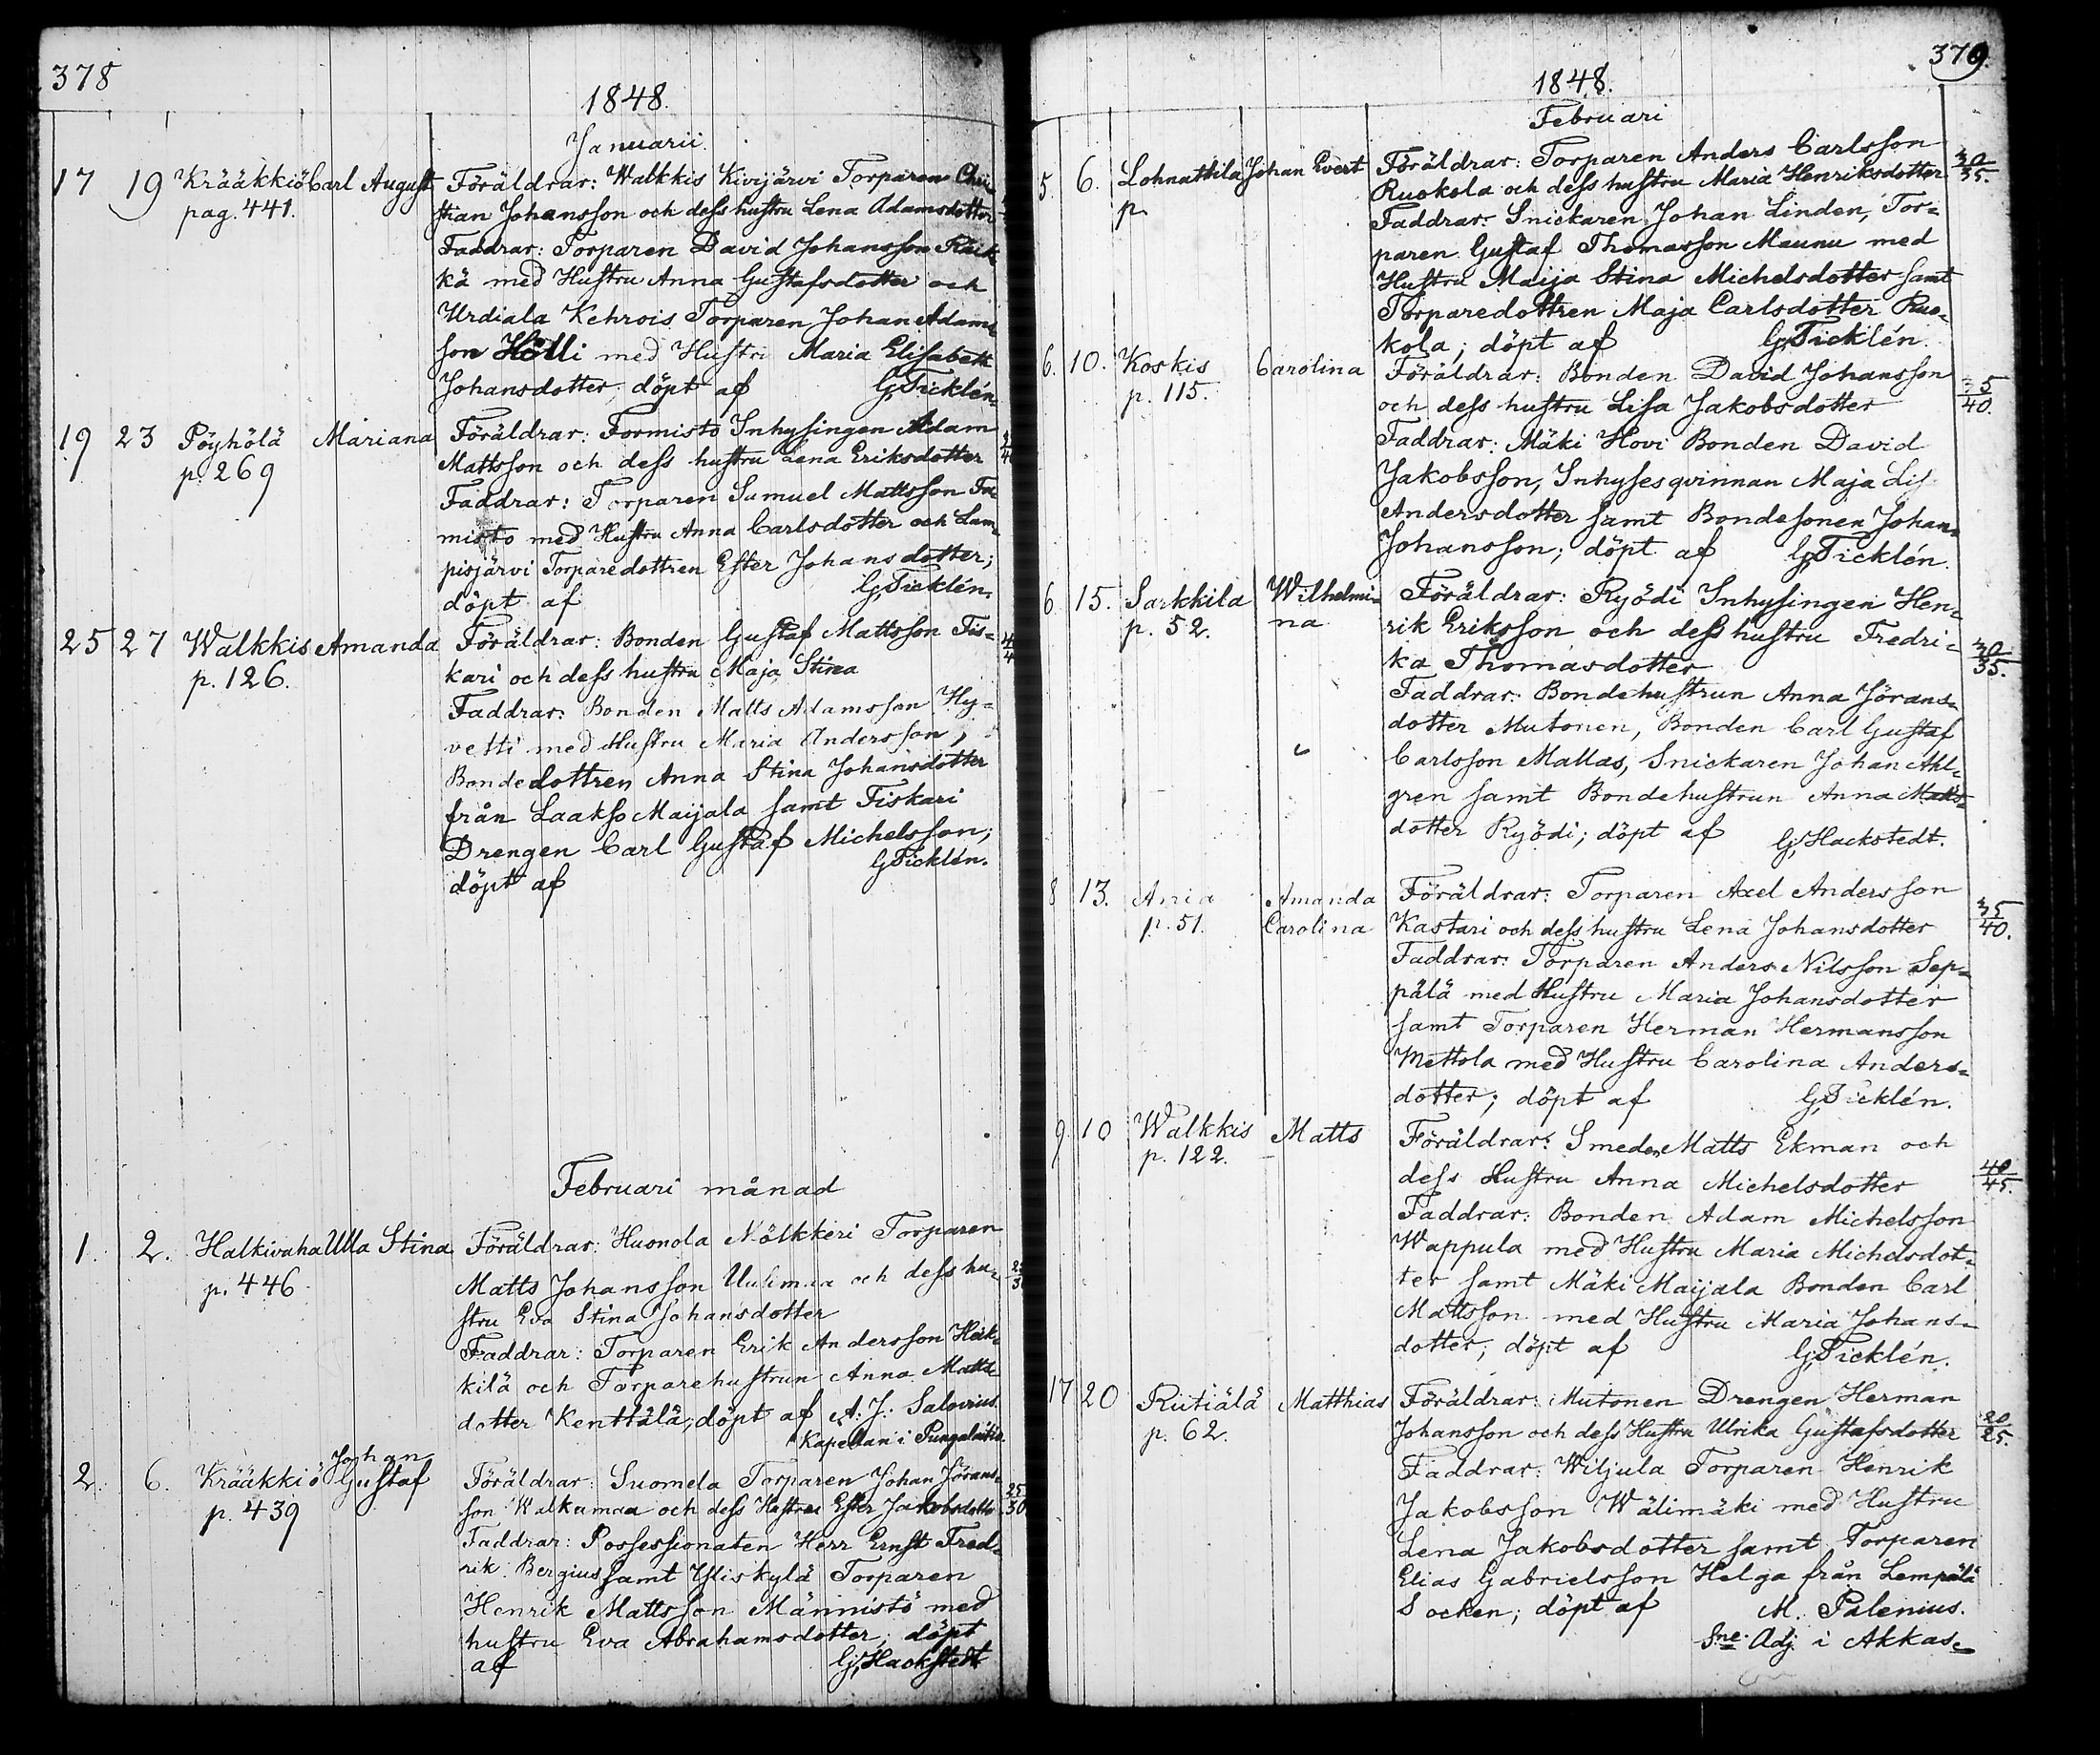 378
1848.
Januarii.
17 19 Krääkkiö Carl August Föräldrar: Walkkis Kivijärvi Torparen Chri
pag. 441. stian Johansson och dess hustru Lena Adamsdotter
Faddrar: Torparen David Johansson
kä med Hustru Anna Gustafsdotter och
Urdiala Kehrois Torparen Johan Adams
son Hölli med Hustru Maria Elisabeth
Johansdotter; döpt af G, Ticklén.
19 23 Pöyhölä Mariana Föräldrar: Formisto Inhysingen Adam
p. 269 Mattsson och dess hustru Lena Eriksdotter
Faddrar: Torparen Samuel Mattsson
misto med Hustru Anna Carlsdotter och Lam
pisjärvi Torparedottren Ester Johansdotter;
döpt af G, Ticklén.
25 27 Walkkis Amanda Föräldrar: Bonden Gustaf Mattsson Fis=
p. 126. kari och dess hustru Maja Stina
Faddrar: Bonden Matts Adamsson Hy=
vetti med Hustru Maria Andersson,
Bondedottren Anna Stina Johansdotter
från Laakso Maijala samt Fiskari
Drengen Carl Gustaf Michelsson;
döpt af G, Ticklén.
Februari månad
1. 2. Halkivaha Ulla Stina Föräldrar: Huonola Nälkkeri Torparen
p. 446 Matts Johansson och dess hu=
stru Eva Stina Johansdotter
Faddrar: Torparen Erik Andersson Heik=
kilä och Torparehustrun Anna Matts
dotter Kenttälä; döpt af A. J. Salovius
Kapellan i Pungalaitio.
2. 6. Krääkkiö Johan Gustaf Föräldrar: Suomela Torparen Johan Jörans= 25
p. 439 son Walkamaa och dess Hustru Ester Jakobsdotter 30.
Faddrar: Possessionaten Herr Ernst Fred=
rik Bergius samt Yliskylä Torparen
Henrik Mattsson Männistö med
hustru Eva Abrahamsdotter; döpt
af G, Hackstedt
379.
1848.
Februari
5. 6. Lohnattila Johan Evert Föräldrar: Torparen Anders Carlsson 30
p. Ruokola och dess hustru Maria Henriksdotter 35.
Faddrar: Snickaren Johan Linden, Tor=
paren Gustaf Thomasson Maunu med
Hustru Maija Stina Michelsdotter samt
Torparedottren Maja Carlsdotter Ruo=
kola; döpt af G, Ticklén.
6. 10. Koskis Carolina Föräldrar: Bonden David Johansson 35
p. 115. och dess hustru Lisa Jakobsdotter 40.
Faddrar: Mäki Hovi Bonden David
Jakobsson, Inhysesqvinnan Maja Lis
Andersdotter samt Bondesonen Johan
Johansson; döpt af G, Ticklén.
6 15. Sarkkila Wilhelmi= Föräldrar: Ryödi Inhysingen Hen=
p. 52. na rik Eriksson och dess hustru Fredri= 30
ka Thomasdotter 35.
Faddrar: Bondehustrun Anna Jörans=
dotter Mutonen, Bonden Carl Gustaf
Carlsson Mallas, Snickaren Johan Ahl=
gren samt Bondehustrun Anna Matts=
dotter Ryödi; döpt af G, Hackstedt.
8 13. Ania Amanda Föräldrar: Torparen Axel Andersson 35
p. 51. Carolina Kastari och dess hustru Lena Johansdotter 40.
Faddrar: Torparen Anders Nilsson Sep=
pälä med Hustru Maria Johansdotter
samt Torparen Herman Hermansson
Mettola med Hustru Carolina Anders=
dotter; döpt af G, Ticklén.
9. 10 Walkkis Matts Föräldrar: Smeden Matts Ekman och
p. 122. dess Hustru Anna Michelsdotter 40
45.
Faddrar: Bonden Adam Michelsson
Wappula med Hustru Maria Michelsdot=
ter samt Mäki Maijala Bonden Carl
Mattsson med Hustru Maria Johans=
dotter; döpt af G, Ticklén.
17 20 Rutiälä Matthias Föräldrar: Mutonen Drengen Herman 20
p. 62. Johansson och dess Hustru Ulrika Gustafsdotter 25.
Faddrar: Wiljula Torparen Henrik
Jakobsson Wälimäki med Hustru
Lena Jakobsdotter samt Torparen
Elias Gabrielsson Helga från Lempälä
Socken; döpt af M. Palenius.
Sne Adj. i Akkas=